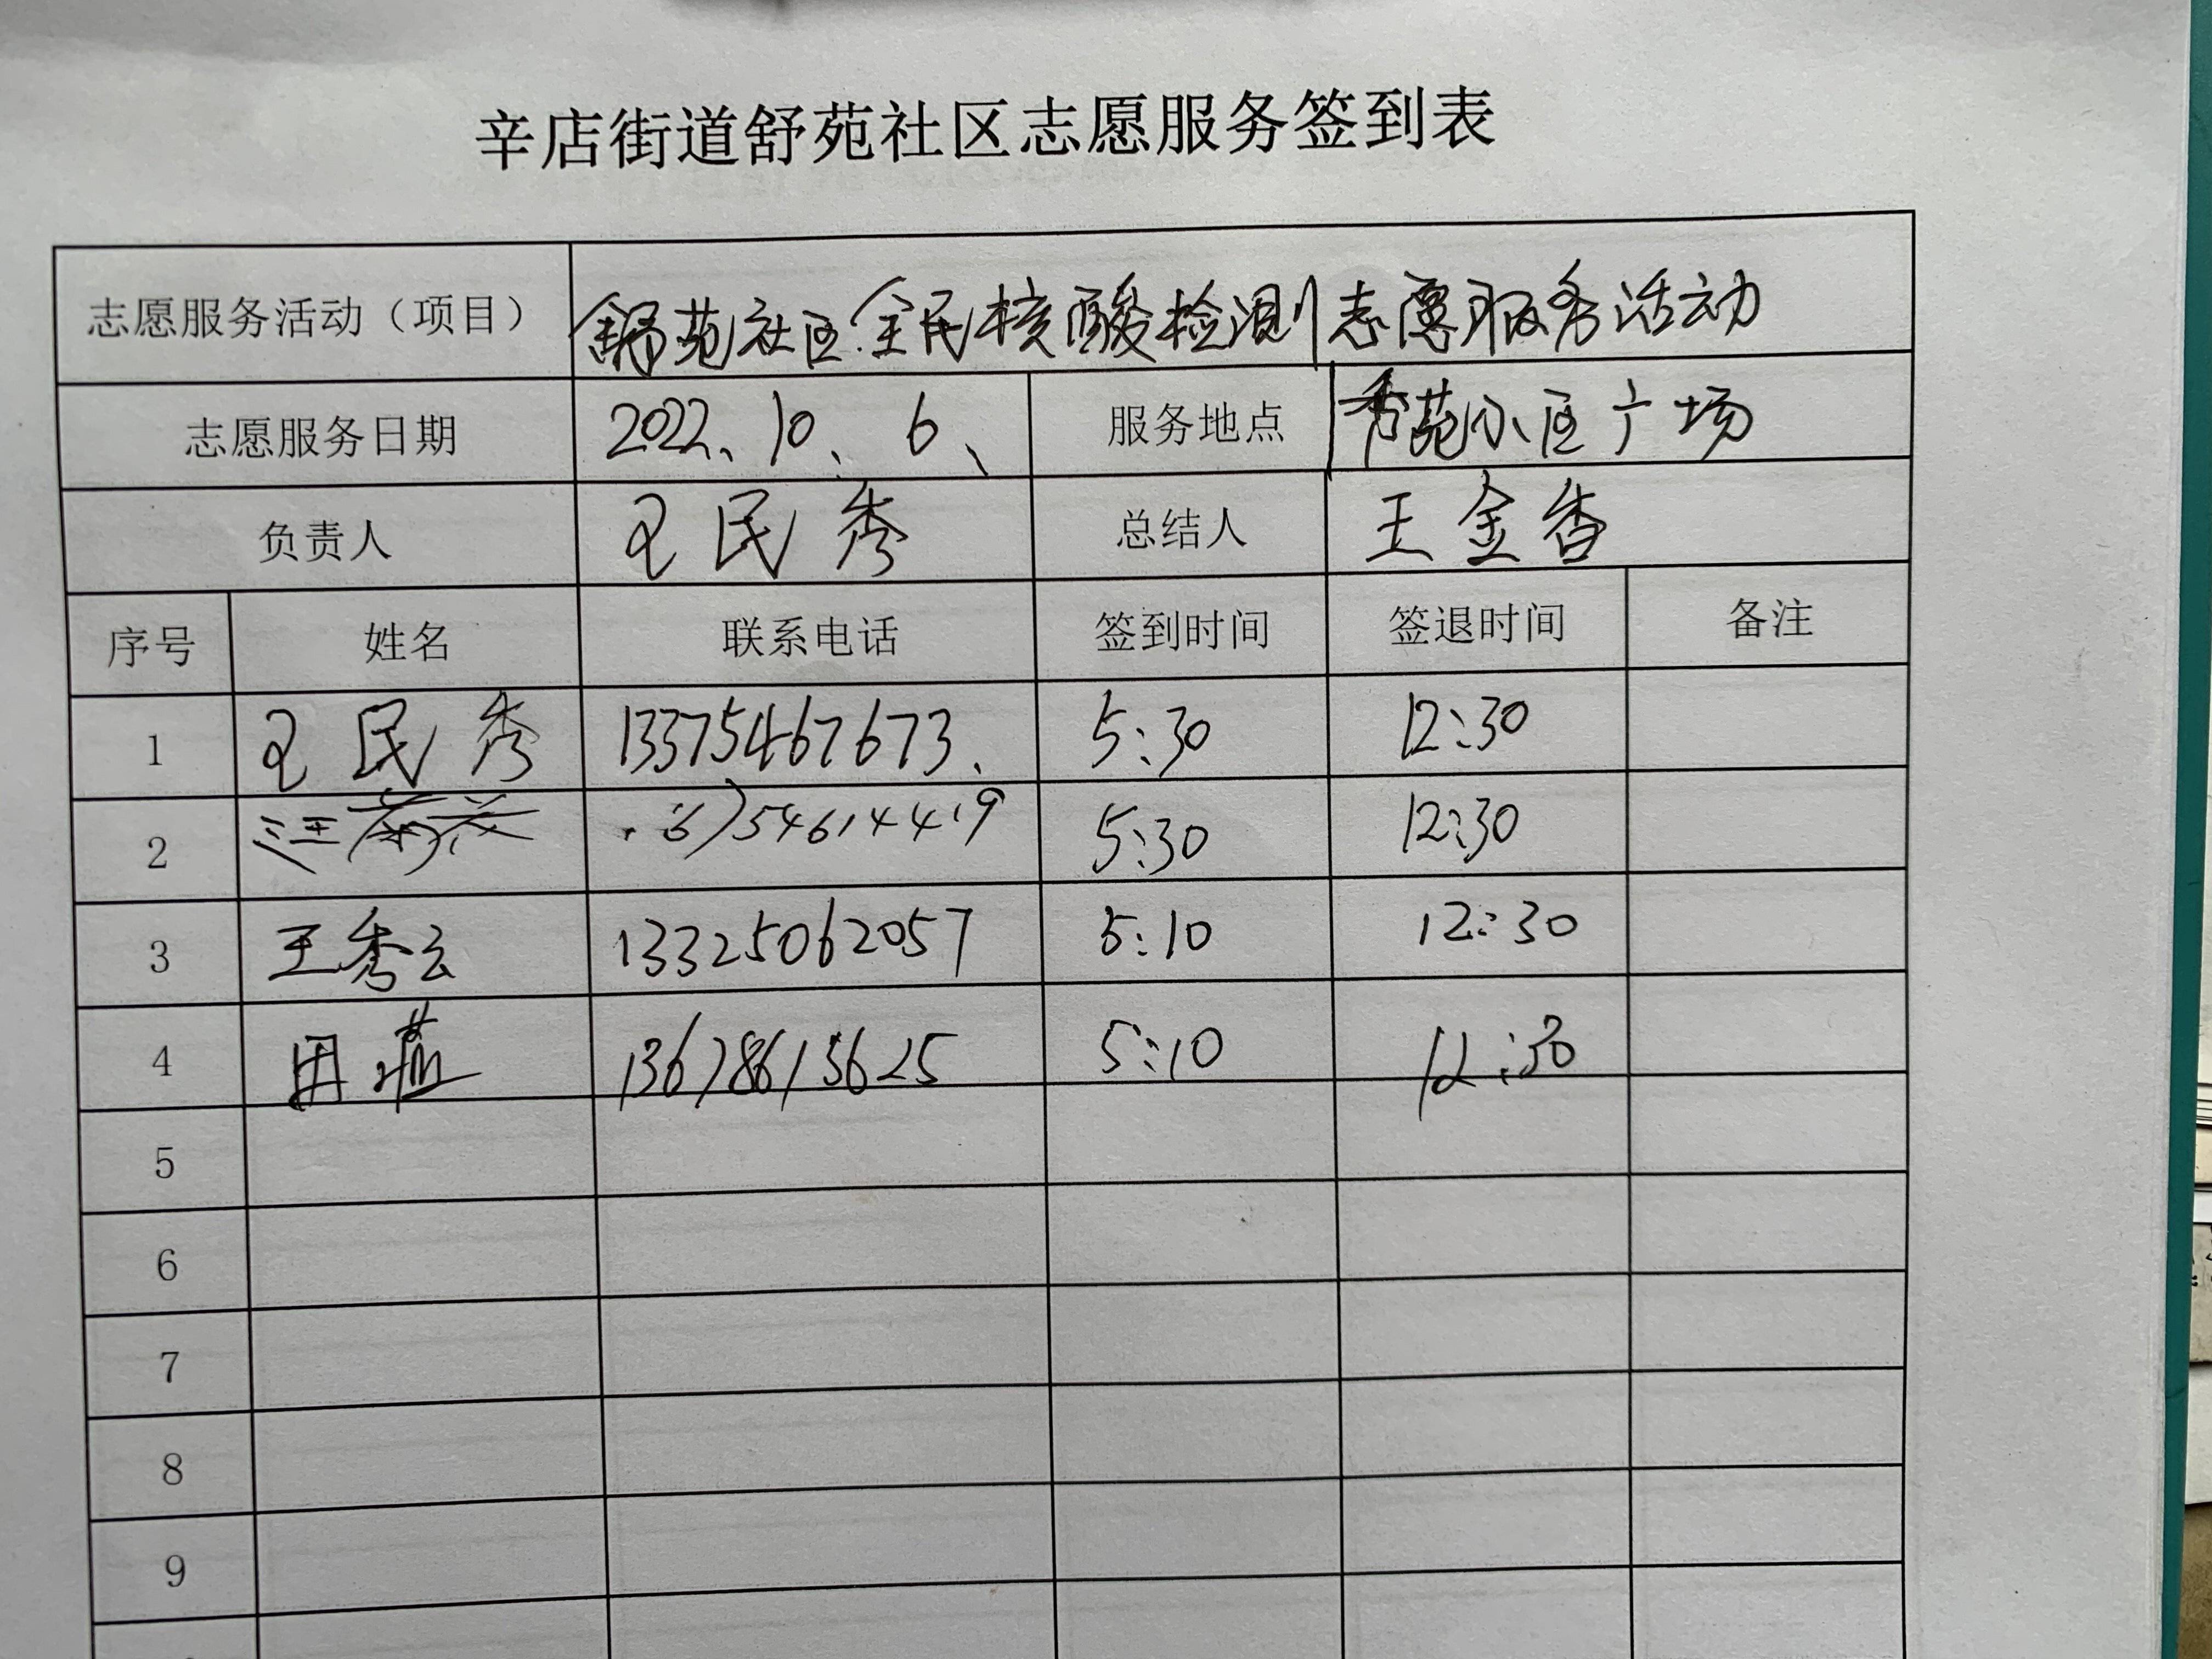 辛店街道舒苑社区志愿服务签到表
志愿服务活动（项目） 舒苑社区全民核酸检测志愿服务活动
志愿服务日期 2022、10、6、 服务地点 秀苑小区广场
负责人 王民秀 总结人 王金香
序号 姓名 联系电话 签到时间 签退时间 备注
1 王民秀 13375467673、 5:30 12:30
2 5:30 12:30
3 王秀云 13325062057 5:10 12:30
4 5:10 12:30
5
6
7
8
9